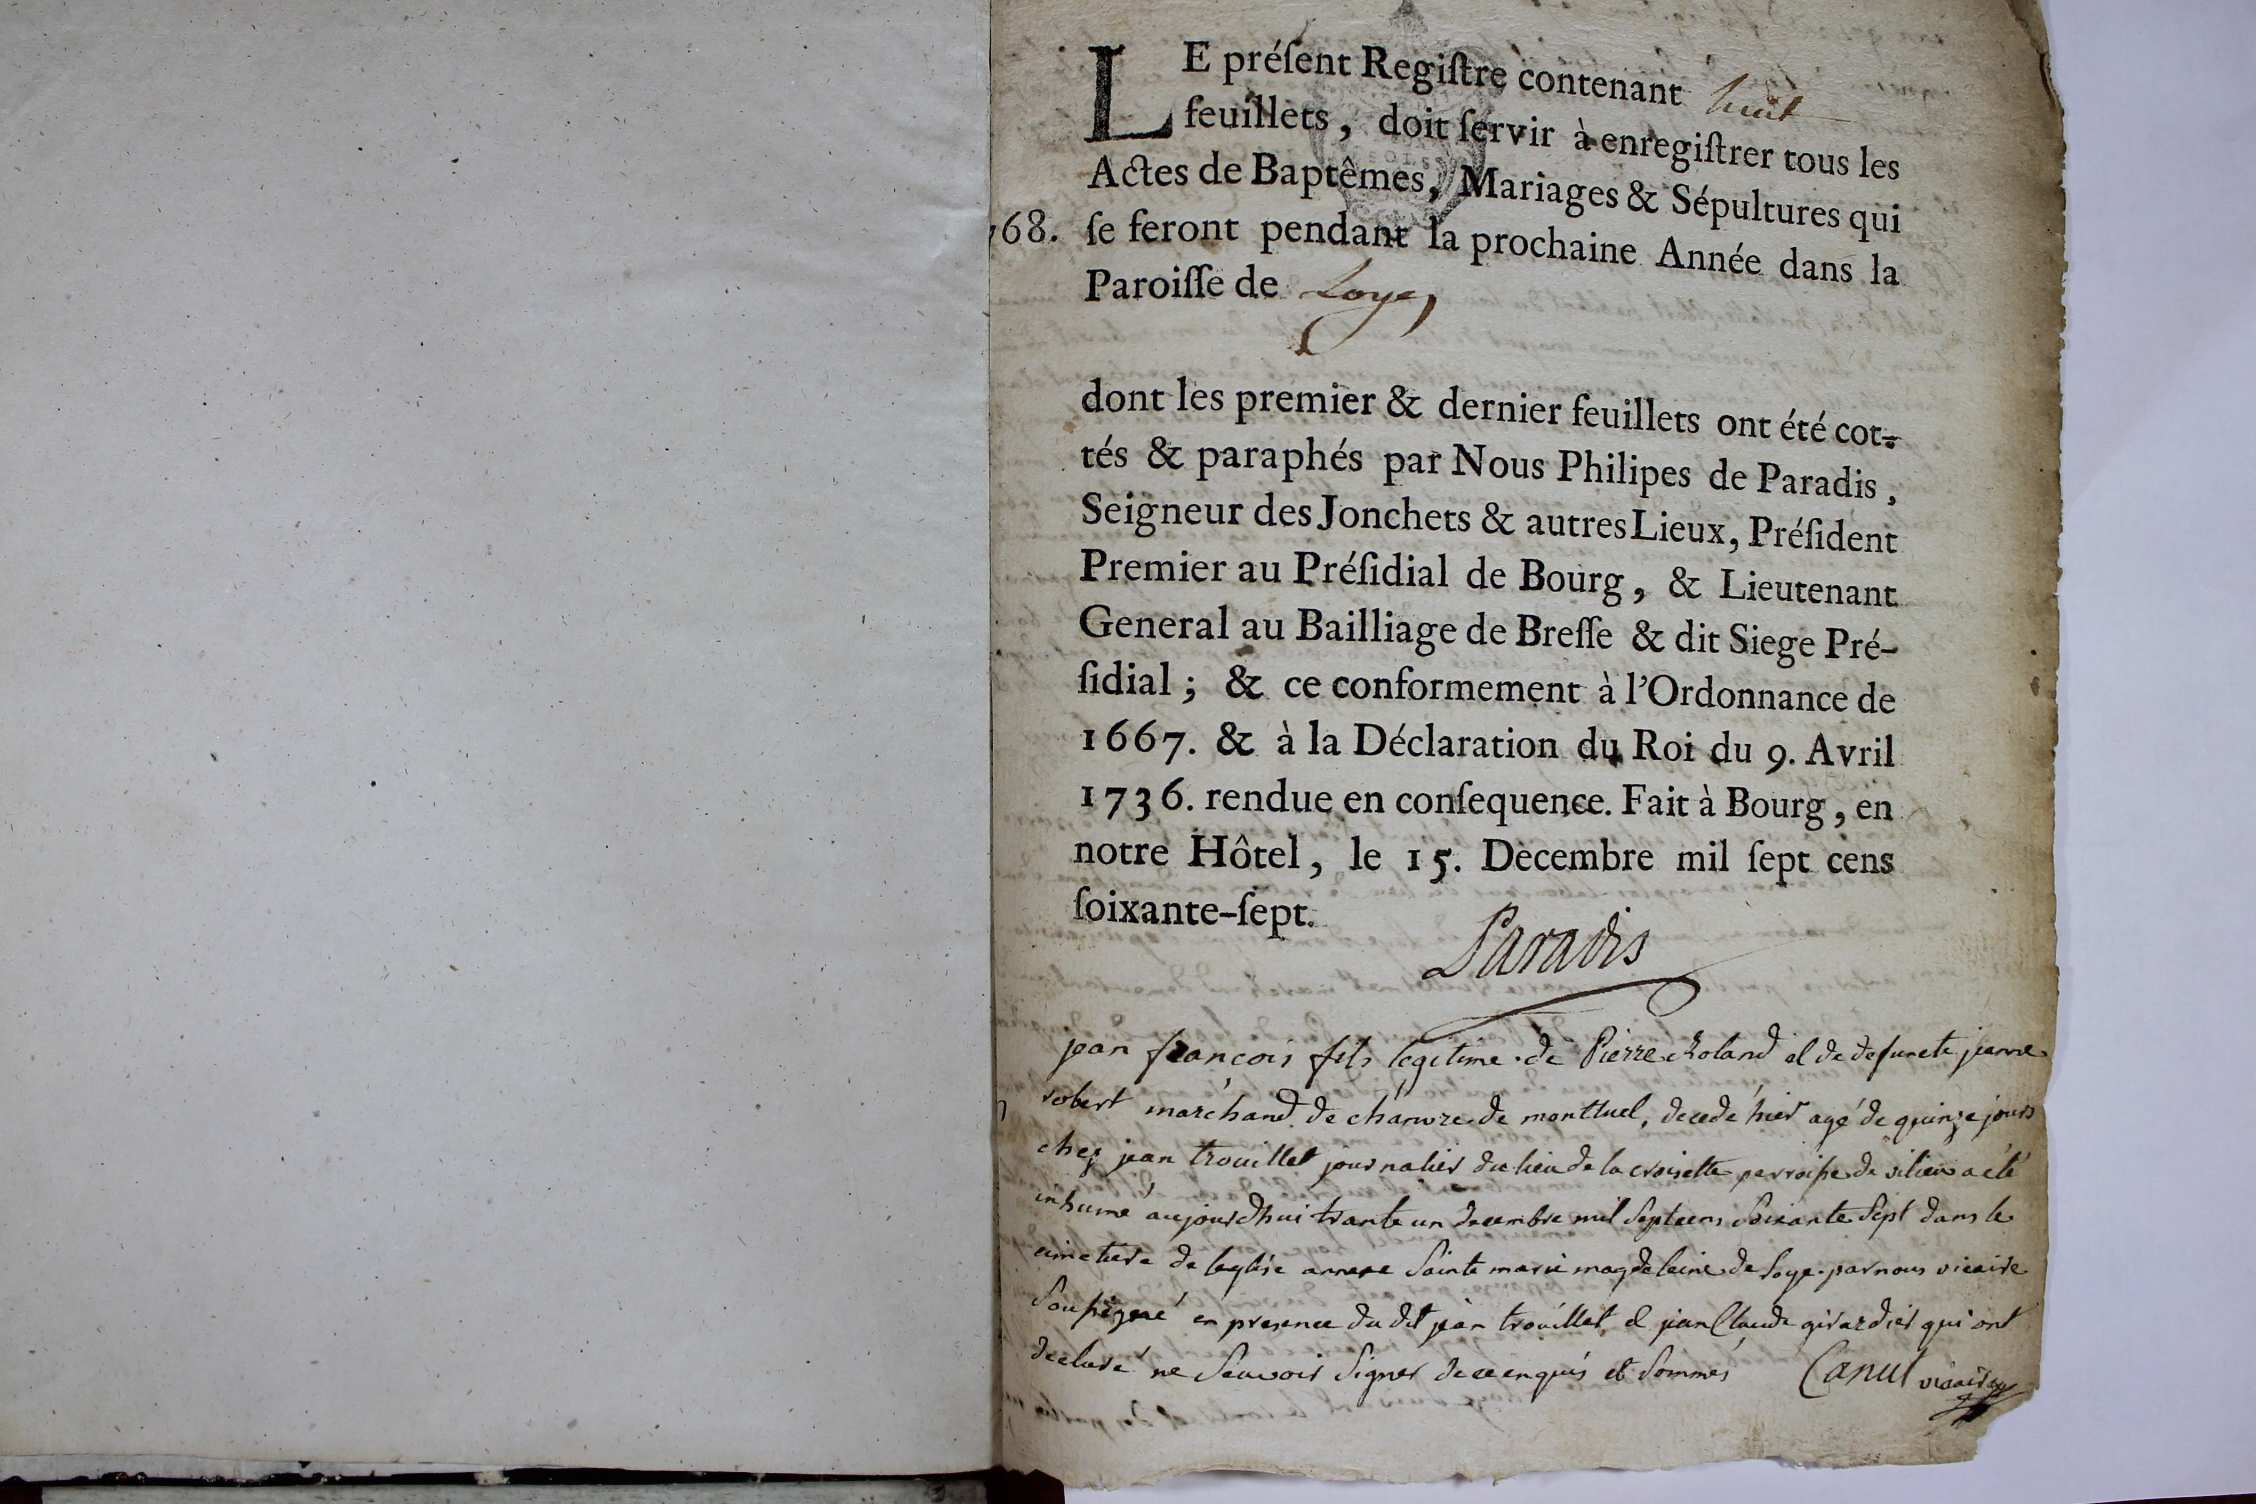 LE préſent Regiſtre contenant huit
feuillets, doit ſervir à enregiſtrer tous les
Actes de Baptêmes, Mariages & Sépultures qui
68. ſe feront pendant la prochaine Année dans la
Paroiſſe de Loye
dont les premier & dernier feuillets ont été cot-
tés & paraphés par Nous Philipes de Paradis,
Seigneur des Jonchets & autres Lieux, Préſident
Premier au Préſidial de Bourg, & Lieutenant
General au Bailliage de Breſſe & dit Siege Pré-
ſidial; & ce conformement à l'Ordonnance de
1667. & à la Déclaration du Roi du 9. Avril
1736. rendue en conſequence. Fait à Bourg, en
notre Hôtel, le 15. Decembre mil ſept cens
ſoixante-ſept.
Paradis
jean françois fils legitime de Pierre Roland et de defuncte jeanne
robert marchand de chanvre de montluel, decedé hier agé de quinze jours
chez jean trouillet journalier du lieu de la croisette parroisse de vilieu a été
inhumé aujourdhui trante un decembre mil septcens soixante sept dans le
cimetiere de leglise annexe sainte marie magdelaine de loye par nous vicaire
soussigné en presence du dit jean trouillet et jean claude girardier qui ont
declaré ne scavoir signer de ce enquis et sommés Canut vicaire